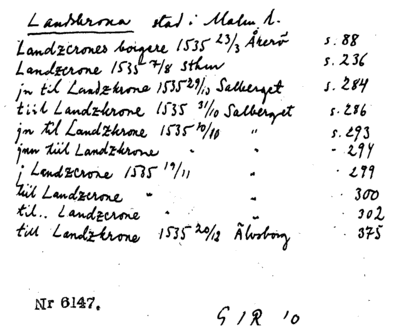 Landskrona stad i Malm. l.
Landzcrones borgere 1535 23/3 Åkerö s. 88
Landzcrone 1535 7/8 Sthlm s. 236
jn til Landzkrone 1535 29/10 Salberget s. 284
tiil Landzkrone 1535 31/10 Salberget s. 286
jn til Landzkrone 1535 10/10 " s. 293
jnn tiil Landzkrone " " - 294
j Landzcrone 1535 19/11 - 299
till Landzcrone " " - 300
til.. Landzcrone " " - 302
till Landzkrone 1535 20/12 Älvsborg - 375
Nr 6147.
G I R 10